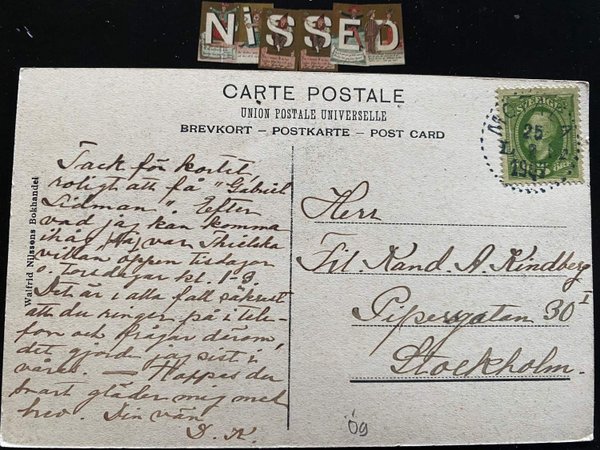 NiSSED
CARTE POSTALE
UNION POSTALE UNIVERSELLE
BREVKORT – POSTKARTE – POST CARD
Walfrid Nilssons Bokhandel
Tack för kortet,
roligt att få "Gabriel
Lidman". Efter
vad jag kan komma
ihåg var Thielska
villan öppen tisdagar
o. torsdagar kl. 1-3.
Det är i alla fall säkrast
att du ringer på i tele-
fon och frågar därom,
det gjorde jag sist i
våras. — Hoppas du
snart gläder mig med
brev. Din vän
D. K.
Herr
Fil. Kand. A. Kindberg
Pipersgatan 30 I
Stockholm.
SVERIGE
25
09